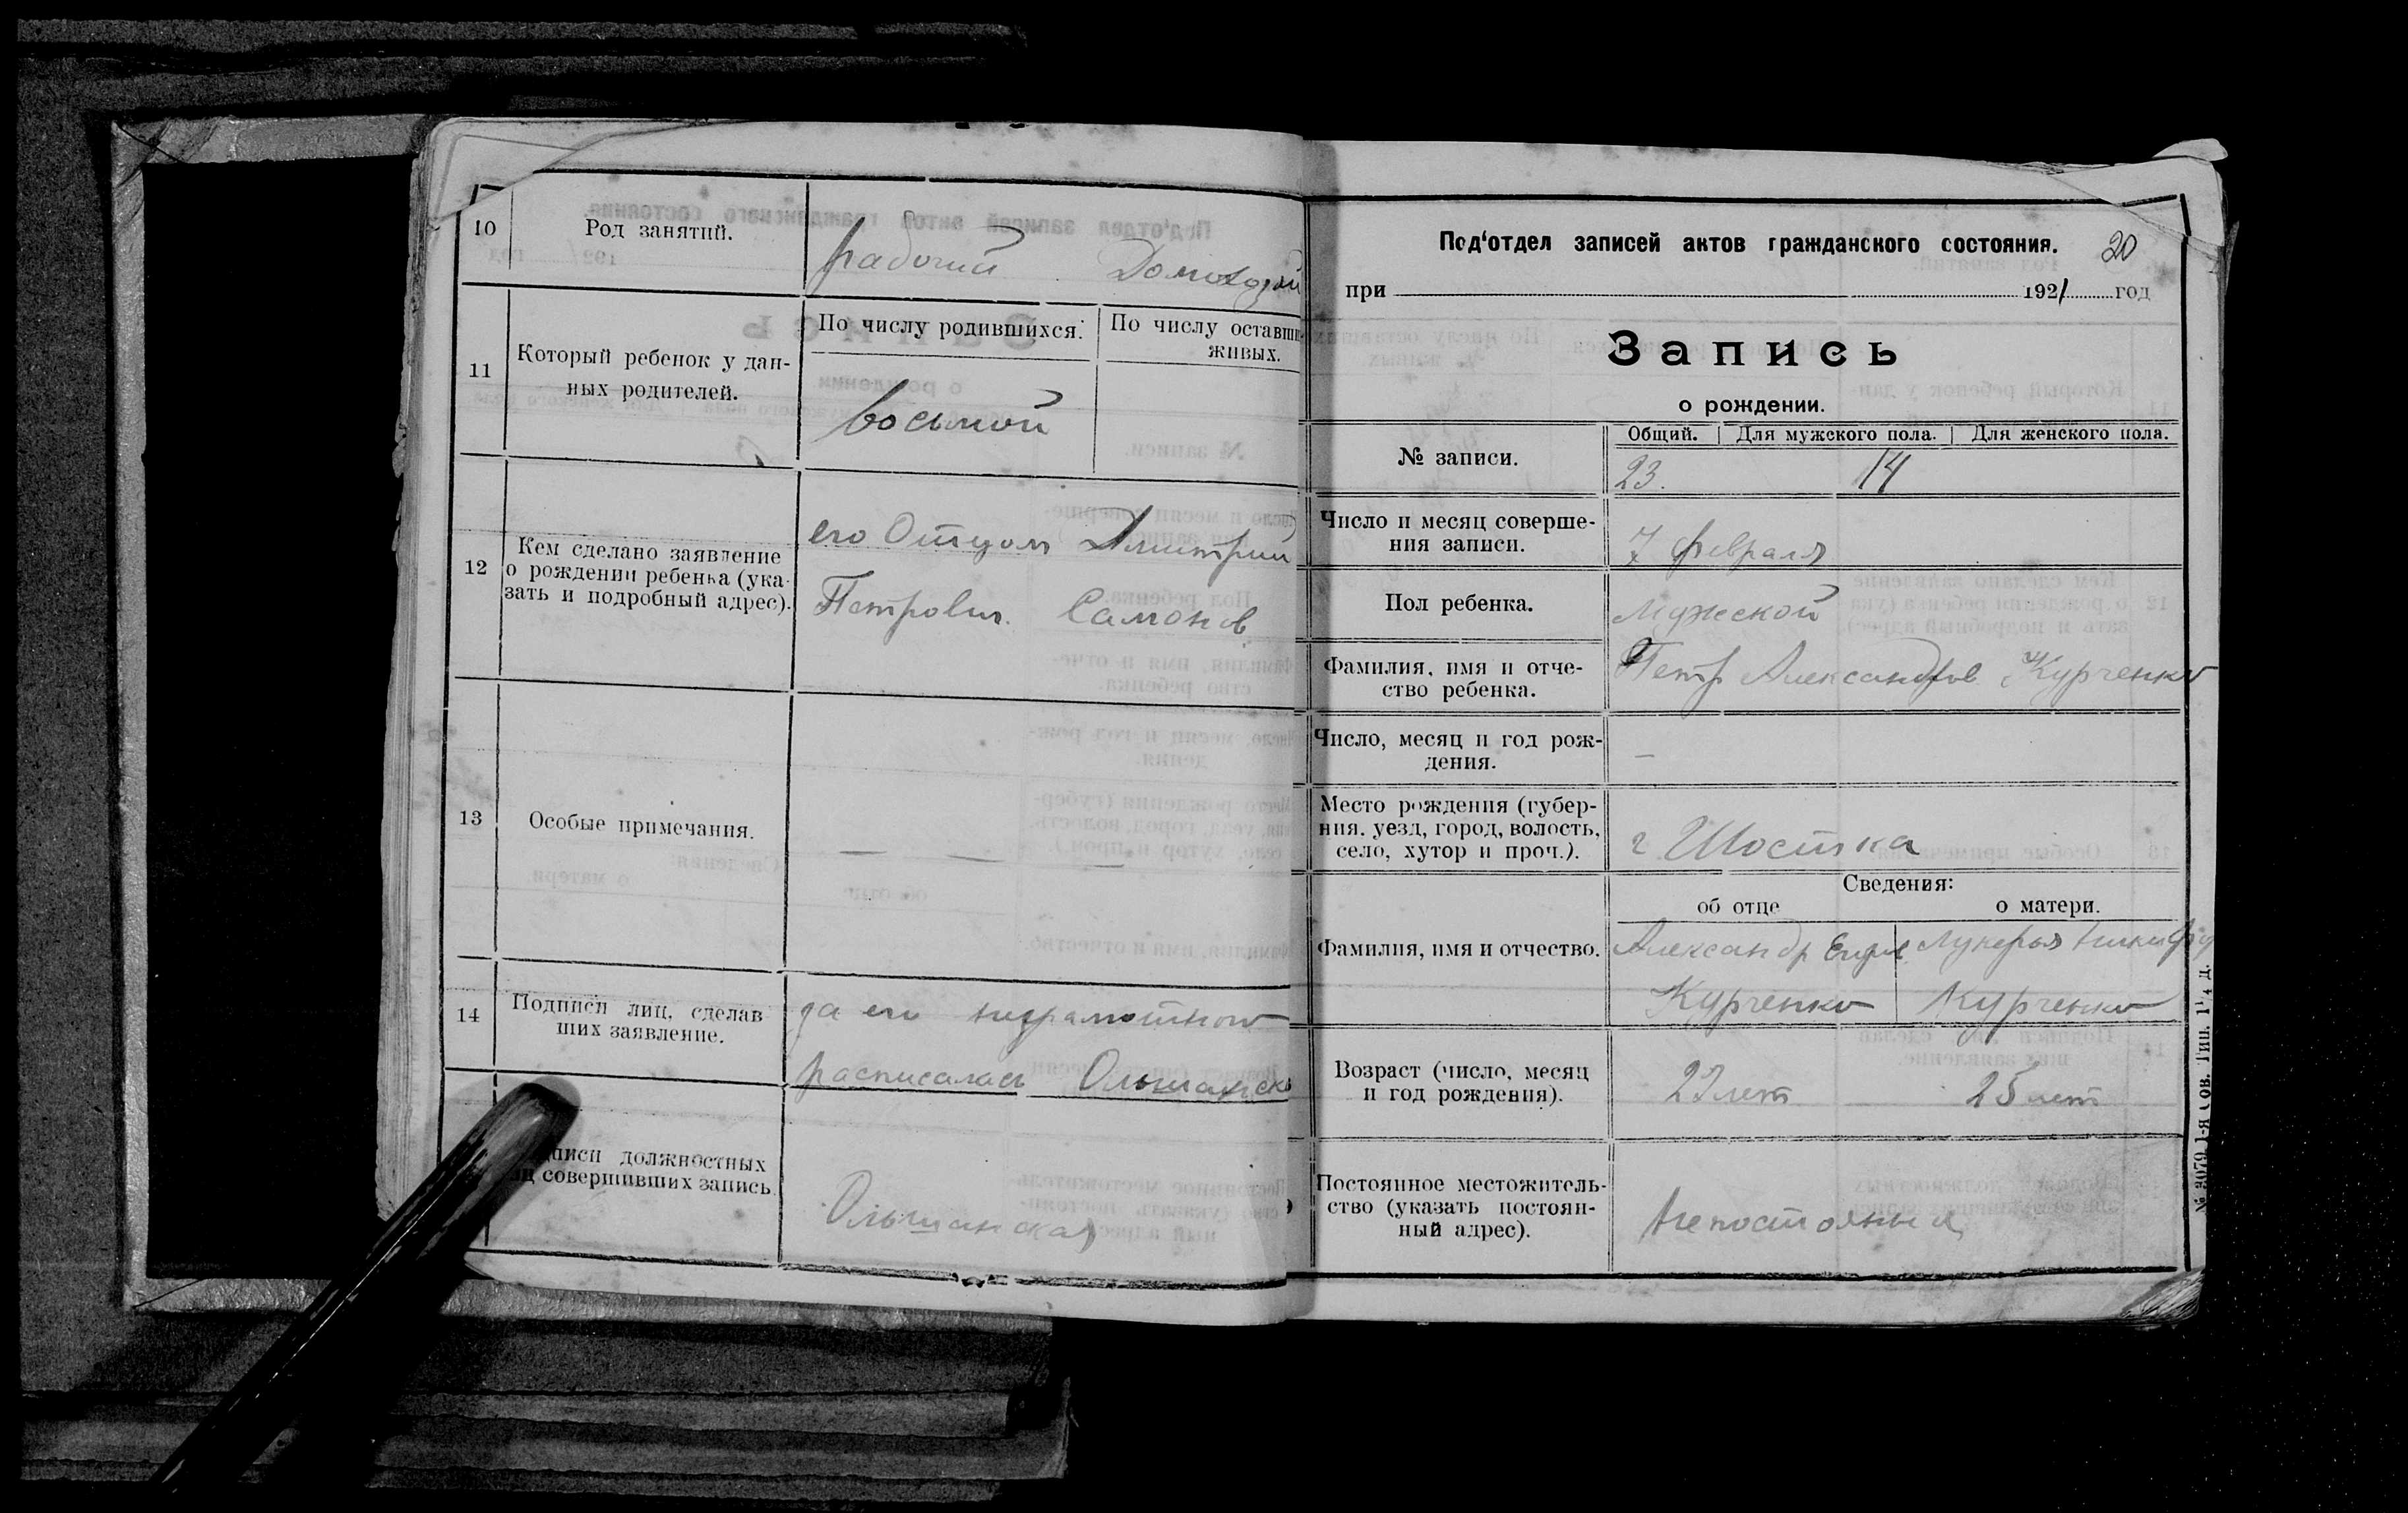 10
Род занятий.
рабочий
Домохозяй
11
Который ребенок у дан-
ных родителей.
По числу родившихся:
По числу оставши-
живых.
восьмой
12
Кем сделано заявление
о рождении ребенка (ука-
зать и подробный адрес).
его Отцом Дмитрий
Петрович. Самонов
13
Особые примечания.
— — —
14
Подписи лиц, сделав
ших заявление.
за его неграмотного
расписалась Ольшанск
должностных
совершивших запись
Ольшанская
Под'отдел записей актов гражданского состояния.
20
при 1921 год
Запись
о рождении.
№ записи.
Общий. Для мужского пола. Для женского пола.
23. 14
Число и месяц соверше-
ния записи.
7 февраля
Пол ребенка.
Мужской
Фамилия, имя и отче-
ство ребенка.
Петр Александров Курченко
Число, месяц и год рож-
дения.
—
Место рождения (губер-
ния. уезд, город, волость,
село, хутор и проч.).
г Шостка
Сведения:
об отце
о матери.
Фамилия, имя и отчество.
Александр
Курченко
Лукерья
Курченко
Возраст (число, месяц
и год рождения).
27 лет
25 лет
Постоянное местожитель-
ство (указать постоян-
ный адрес).
№ 3079 1-я Сов. Тип. 1¼ д.